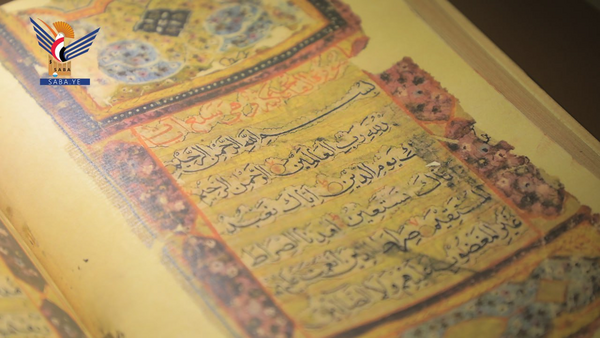 SABA
SABA.YE
بسم الله الرحمن الرحيم
لله رب العالمين الرحمن الرحيم
يوم الدين اياك نعبد
واياك نستعين اهدنا الصراط
المستقيم صراط الذين انعمت
غير المغضوب عليهم ولا